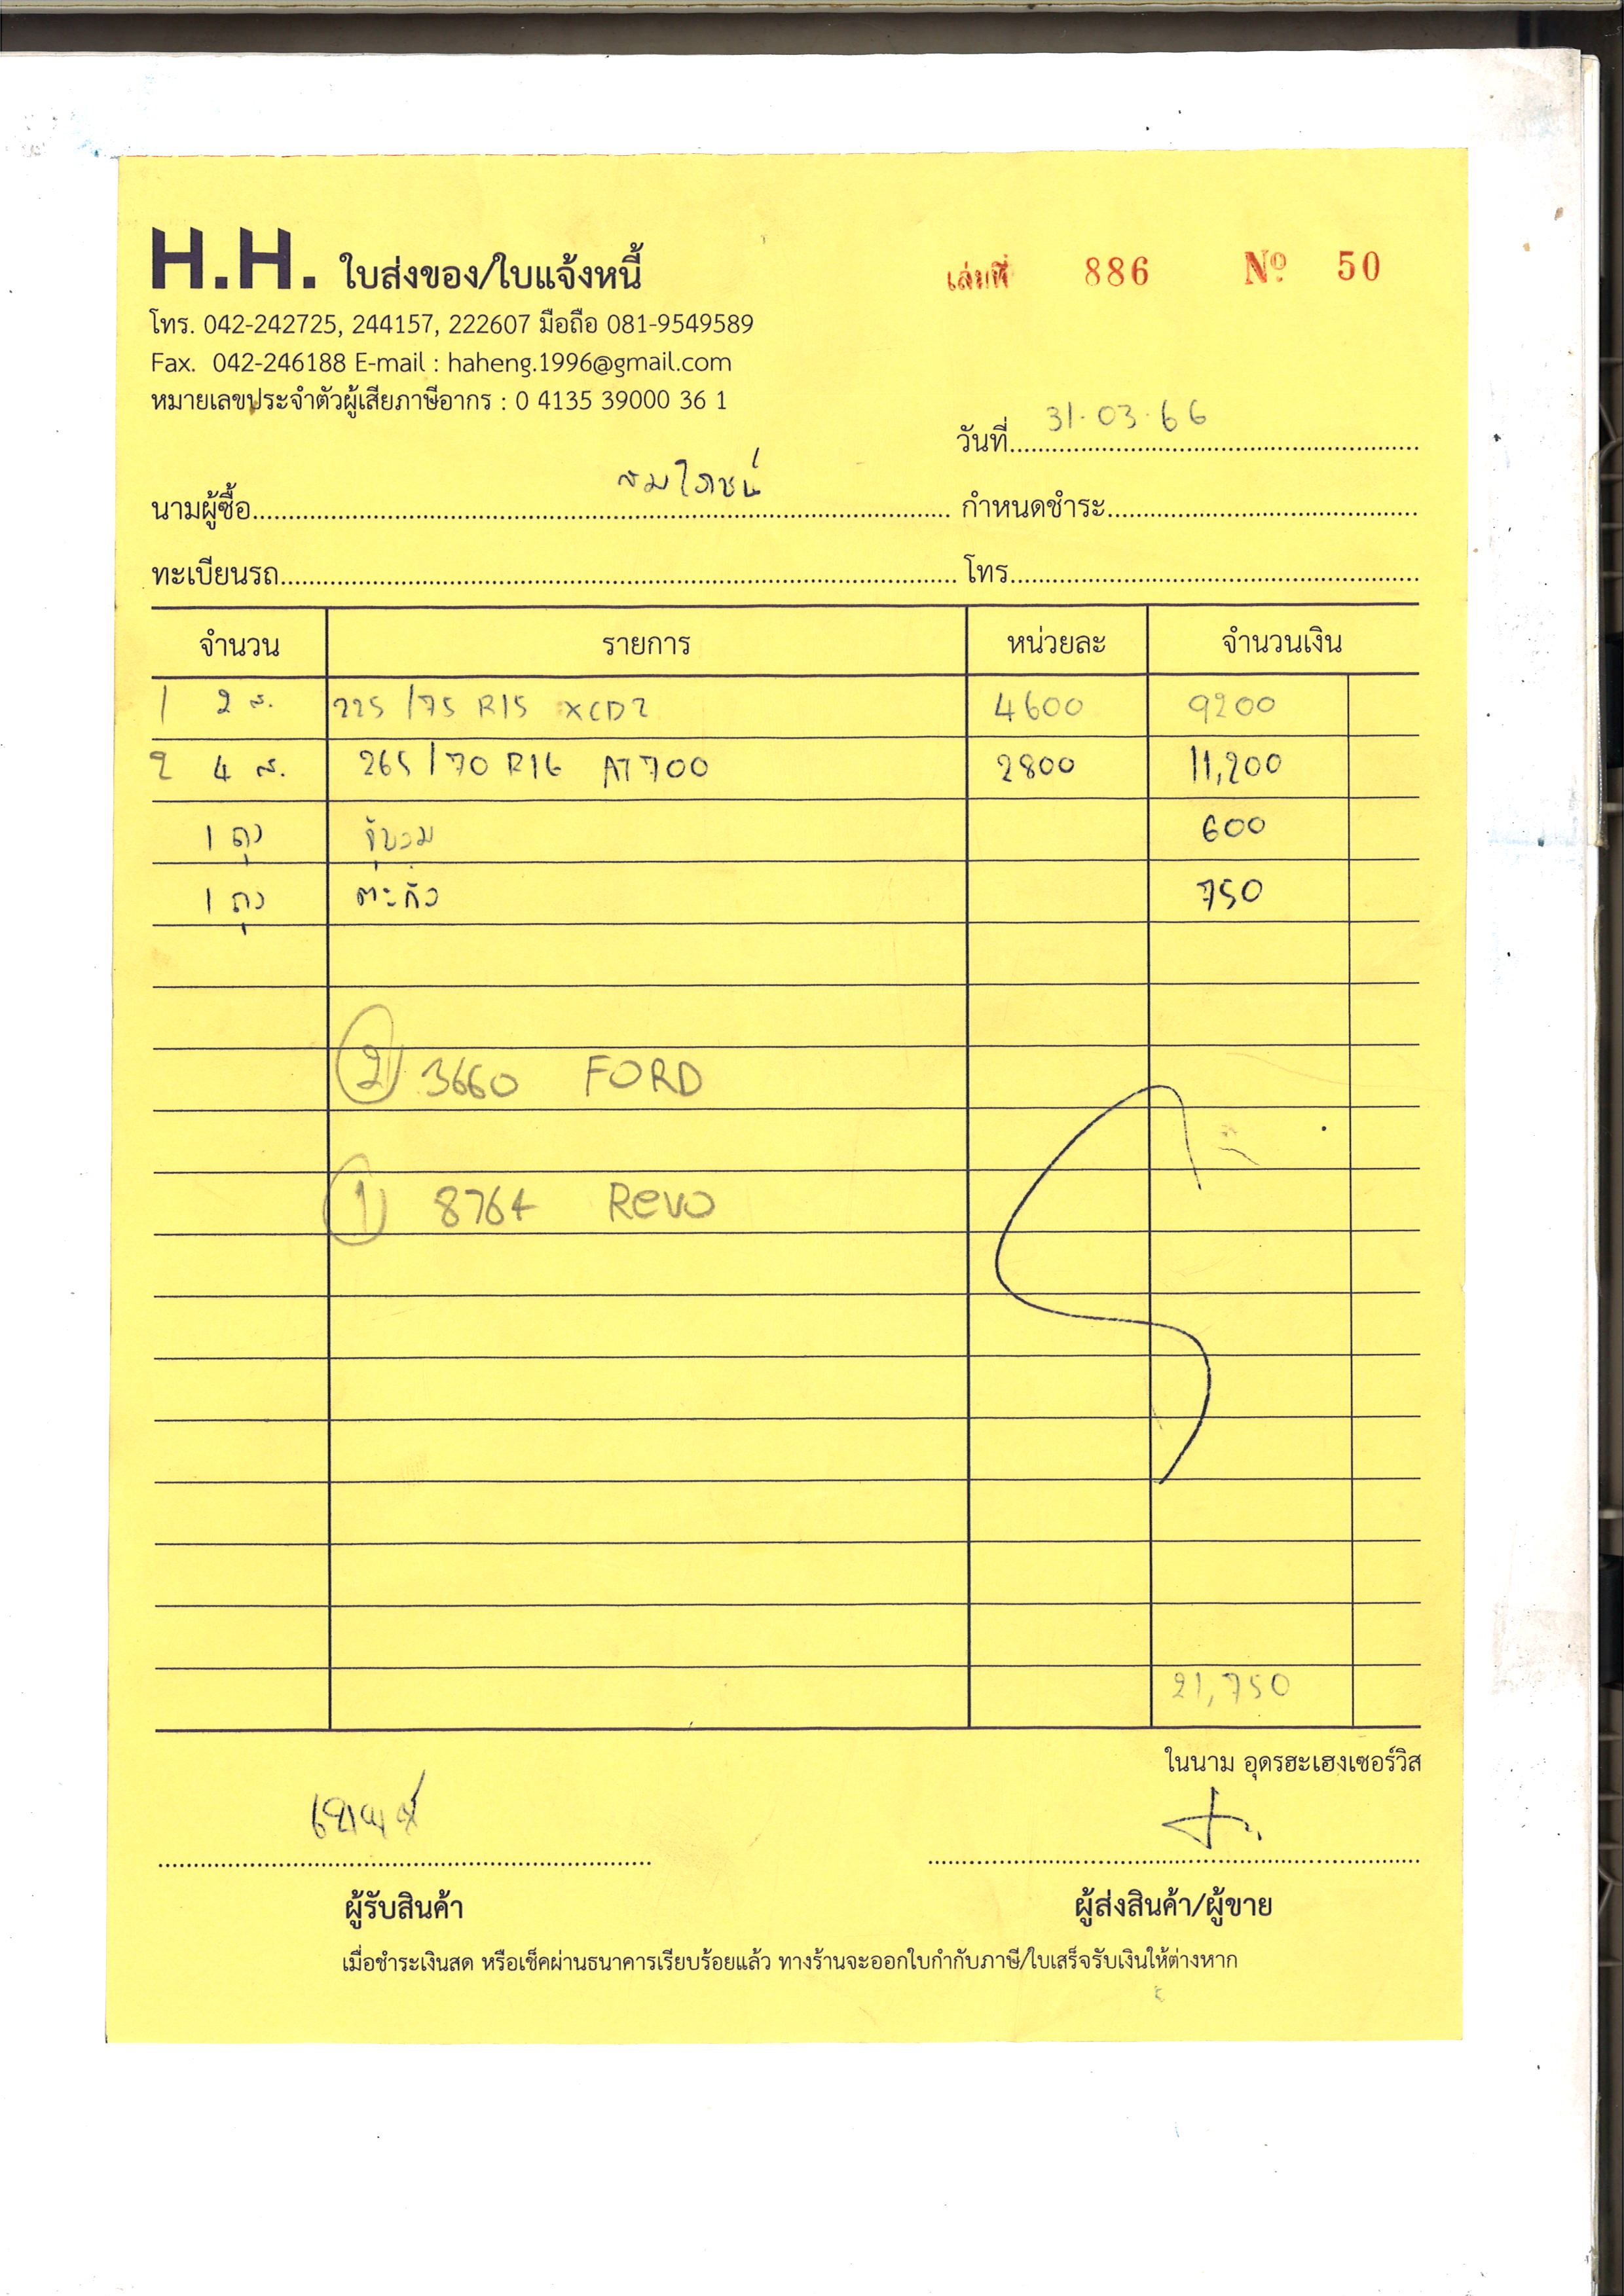 H.H. ใบส่งของ/ใบแจ้งหนี้ เล่มที่ 886 Nº 50
โทร. 042-242725, 244157, 222607 มือถือ 081-9549589
Fax. 042-246188 E-mail : haheng.1996@gmail.com
หมายเลขประจำตัวผู้เสียภาษีอากร : 0 4135 39000 36 1
วันที่ 31.03.66
นามผู้ซื้อ สมโภชน์ กำหนดชำระ
ทะเบียนรถ โทร.
จำนวน รายการ หน่วยละ จำนวนเงิน
1 2 ส. 225/75 R15 XCD2 4600 9200
2 4 ส. 265/70 R16 AT700 2800 11,200
1 ถุง จุ๊บลม 600
1 ถุง ตะกั่ว 750
2 3660 FORD
1 8764 Revo
21,750
ในนาม อุดรฮะเฮงเซอร์วิส
ผู้รับสินค้า ผู้ส่งสินค้า/ผู้ขาย
เมื่อชำระเงินสด หรือเช็คผ่านธนาคารเรียบร้อยแล้ว ทางร้านจะออกใบกำกับภาษี/ใบเสร็จรับเงินให้ต่างหาก